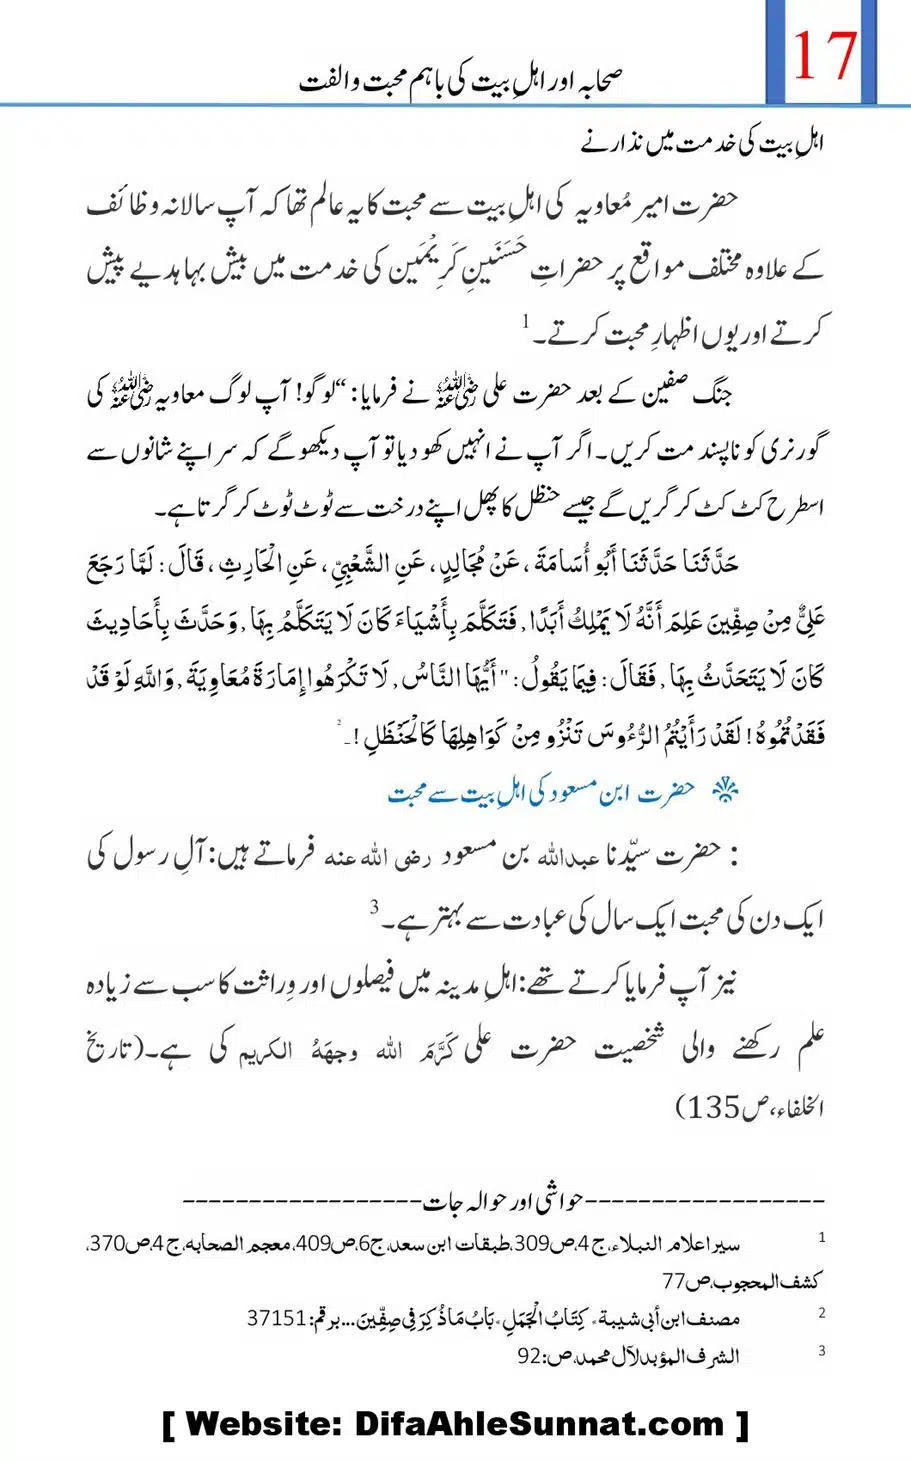 17
صحابہ اور اہلِ بیت کی باہم محبت و الفت
اہلِ بیت کی خدمت میں نذارنے
حضرت امیر مُعاویہ کی اہلِ بیت سے محبت کا یہ عالم تھا کہ آپ سالانہ وظائف
کے علاوہ مختلف مواقع پر حضراتِ حَسَنَینِ کَرِیْمَین کی خدمت میں بیش بہا ہدیے پیش
کرتے اور یوں اظہارِ محبت کرتے۔1
جنگ صفین کے بعد حضرت علی رضی اللہ عنہ نے فرمایا: “لوگو! آپ لوگ معاویہ رضی اللہ عنہ کی
گورنری کو ناپسند مت کریں۔ اگر آپ نے انہیں کھو دیا تو آپ دیکھو گے کہ سر اپنے شانوں سے
اسطرح کٹ کٹ کر گریں گے جیسے حنظل کا پھل اپنے درخت سے ٹوٹ ٹوٹ کر گرتا ہے۔
حَدَّثَنَا حَدَّثَنَا أَبُو أُسَامَةَ ، عَنْ مُجَالِدٍ ، عَنِ الشَّعْبِيِّ ، عَنِ الْحَارِثِ ، قَالَ : لَمَّا رَجَعَ
عَلِيٌّ مِنْ صِفِّينَ عَلِمَ أَنَّهُ لَا يَمْلِكُ أَبَدًا , فَتَكَلَّمَ بِأَشْيَاءَ كَانَ لَا يَتَكَلَّمُ بِهَا , وَحَدَّثَ بِأَحَادِيثَ
كَانَ لَا يَتَحَدَّثُ بِهَا , فَقَالَ : فِيمَا يَقُولُ : " أَيُّهَا النَّاسُ , لَا تَكْرَهُوا إِمَارَةَ مُعَاوِيَةَ , وَاللَّهِ لَوْ قَدْ
فَقَدْتُمُوهُ ! لَقَدْ رَأَيْتُمُ الرُّءُوسَ تَنْزُو مِنْ كَوَاهِلِهَا كَالْحَنْظَلِ !۔2
حضرت ابن مسعود کی اہلِ بیت سے محبت
: حضرت سیّدنا عبداللہ بن مسعود رضی اللہ عنہ فرماتے ہیں: آلِ رسول کی
ایک دن کی محبت ایک سال کی عبادت سے بہتر ہے۔3
نیز آپ فرمایا کرتے تھے: اہلِ مدینہ میں فیصلوں اور وِراثت کا سب سے زیادہ
علم رکھنے والی شخصیت حضرت علی کَرَّمَ اللہ وجھَہُ الکریم کی ہے۔(تاریخ
الخلفاء، ص135)
------------------حواشی اور حوالہ جات------------------
1 سیر اعلام النبلاء، ج4، ص309، طبقات ابن سعد، ج6، ص409، معجم الصحابہ، ج4، ص370،
کشف المحجوب، ص77
2 مصنف ابن أبي شيبة، كِتَابُ الْجَمَلِ، بَابُ مَا ذُكِرَ فِي صِفِّينَ...برقم: 37151
3 الشرف المؤبد لآل محمد، ص: 92
[ Website: DifaAhleSunnat.com ]